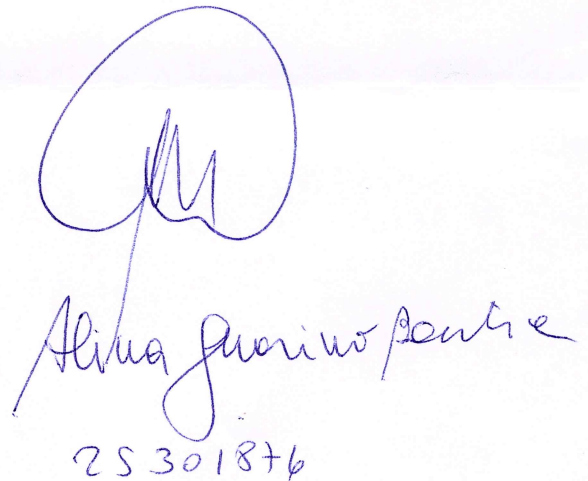 Alina Guarino
25301876